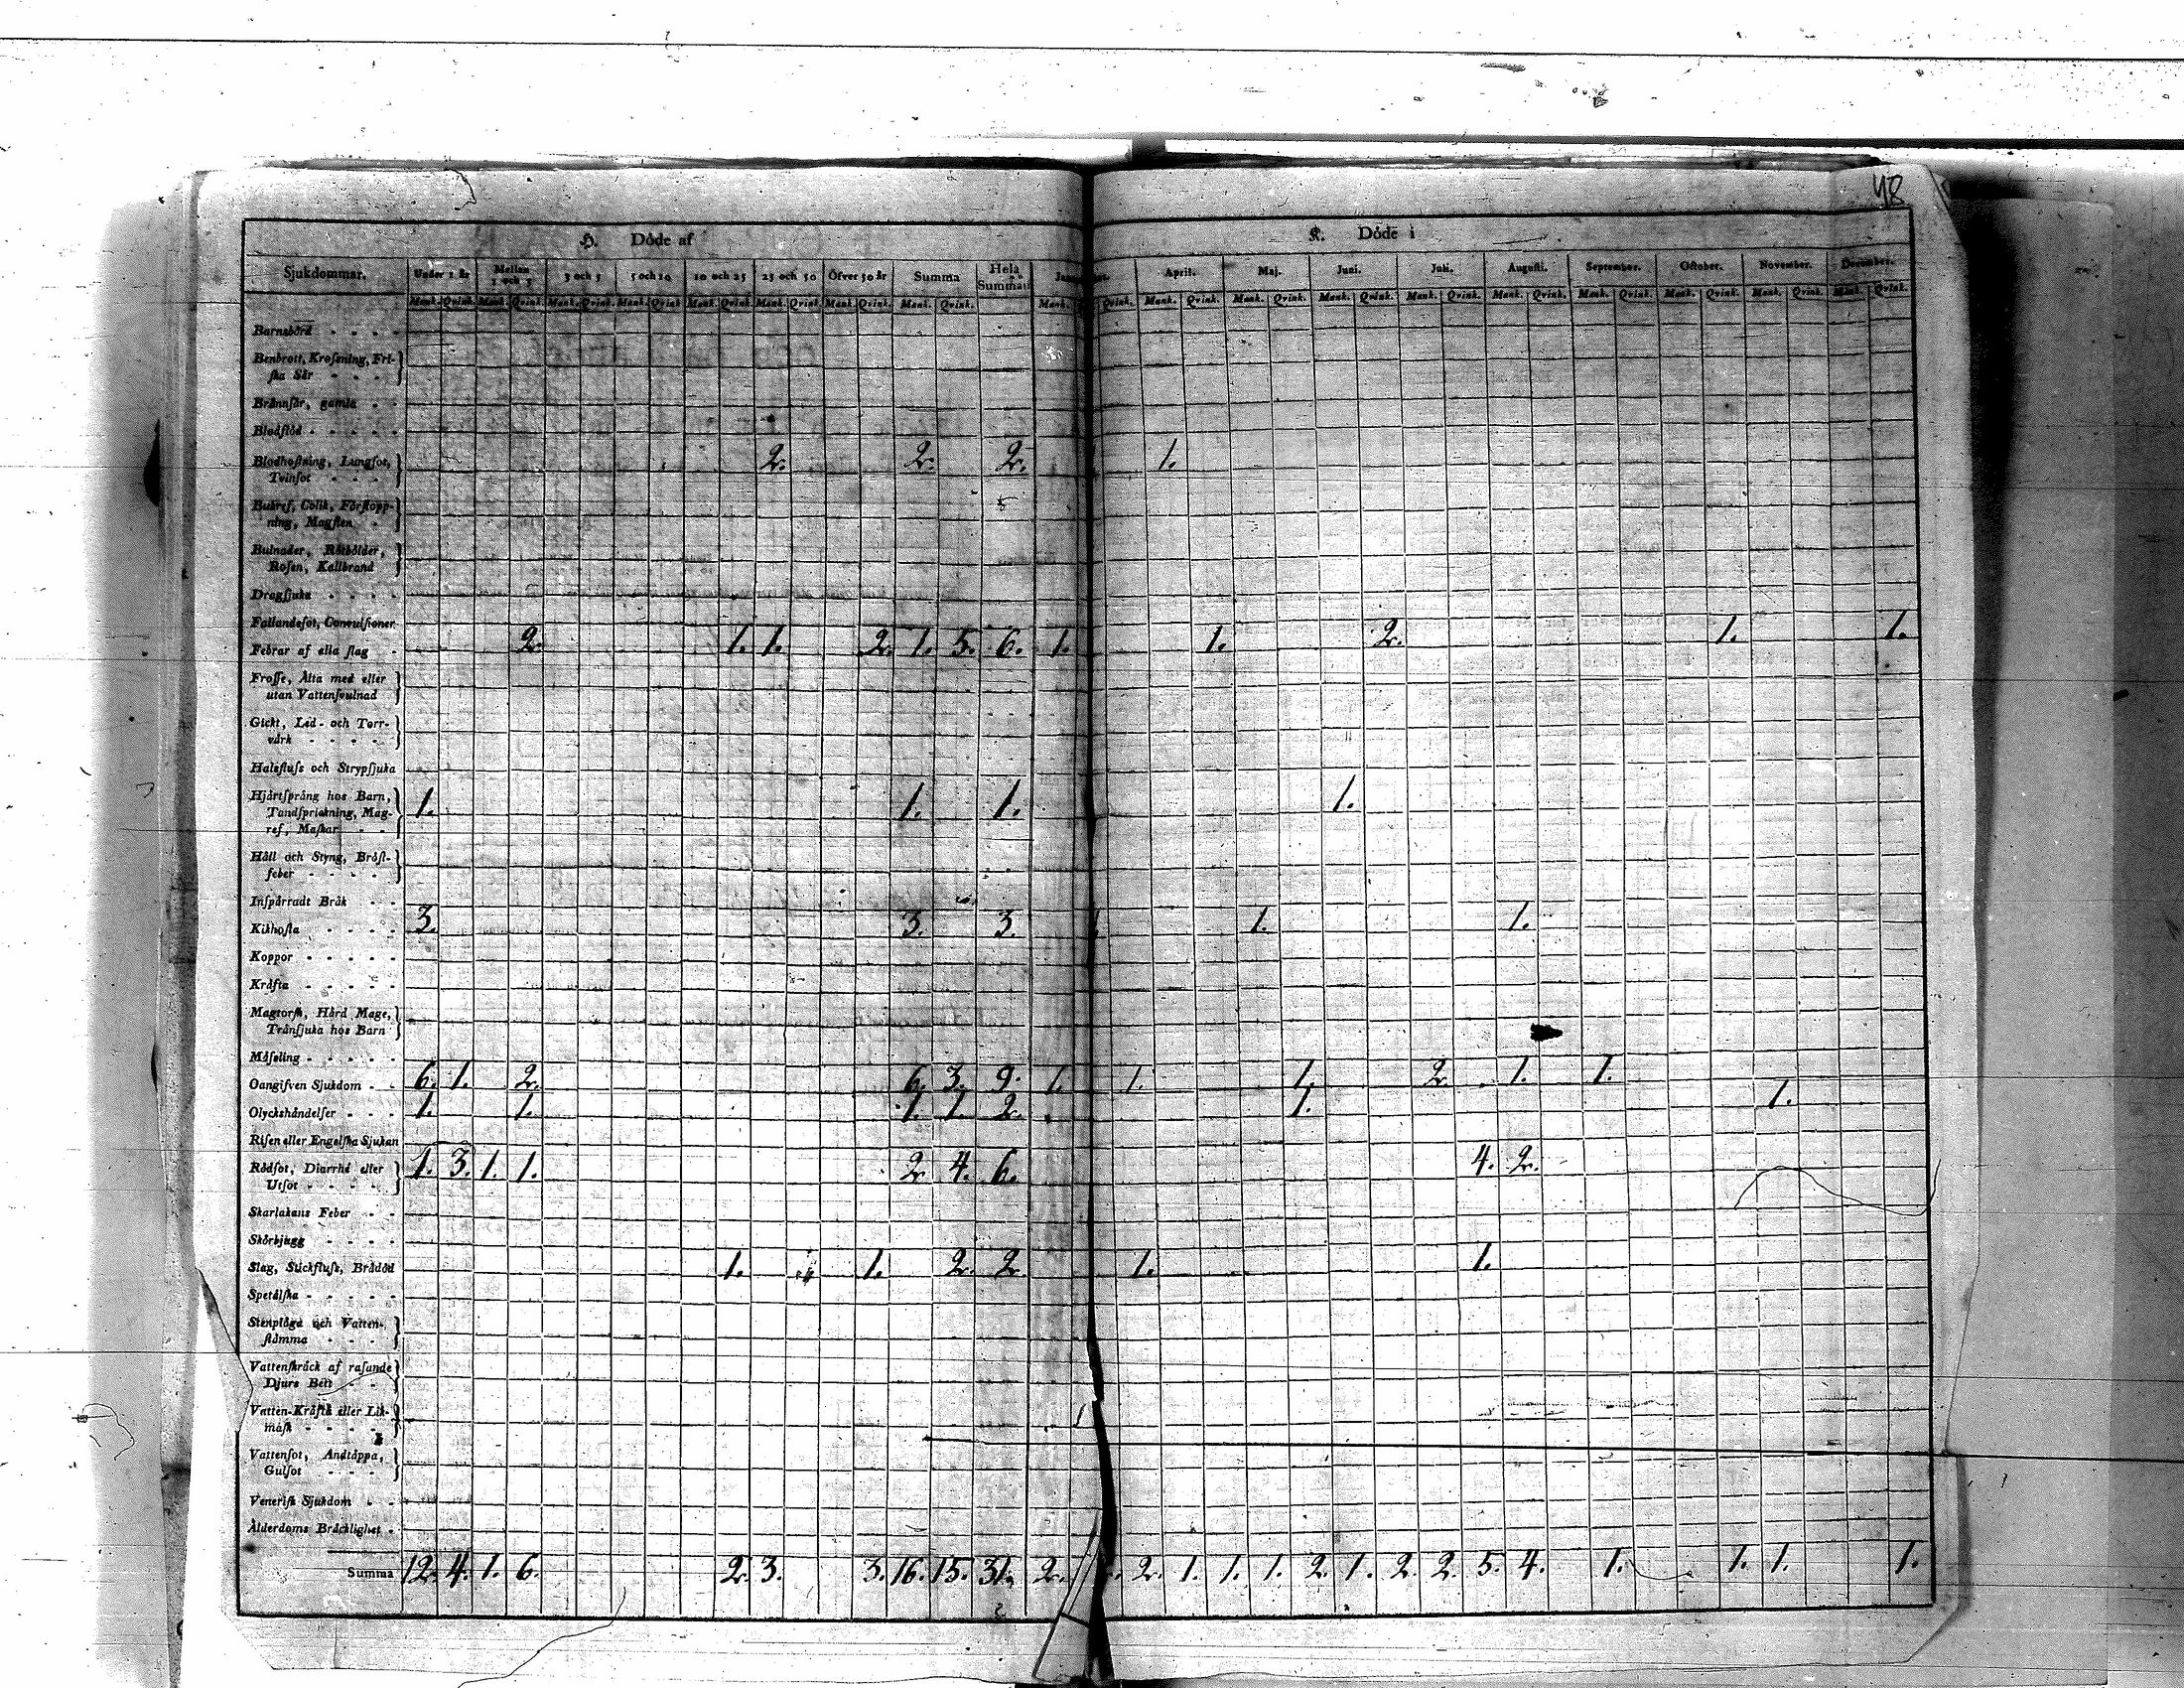 48
H. Döde af K. Döde i
Sjukdommar. Under 1 år Mellan 1 och 3 3 och 5 5 och 10 10 och 25 25 och 50 Öfver 50 år Summa Hela Summan April. Maj. Juni. Juli. Augusti. September. October. November. December.
Mank. Qvink. Mank. Qvink. Mank. Qvink. Mank. Qvink. Mank. Qvink. Mank. Qvink. Mank. Qvink. Mank. Qvink. Mank. Qvink. Mank. Qvink. Mank. Qvink. Mank. Qvink. Mank. Qvink. Mank. Qvink. Mank. Qvink. Mank. Qvink. Mank. Qvink. Mank. Qvink.
Barnsbörd
Benbrott, Krosning, Fri-
ska Sår
Brännsår, gamla
Blodflöd
Blodhostning, Lungsot, 2. 2. 2. 1.
Tvinsot
Bukref, Colik, Förstopp-
ning, Magsten
Bulnader, Rötbölder,
Rosen, Kallbrand
Dragsjuka
Fallandesot, Convulsioner
Febrar af alla slag 2. 1. 1. 2. 1. 5. 6. 1. 1. 2. 1. 1.
Frosse, Älta med eller
utan Vattensvulnad
Gickt, Led- och Torr-
värk
Halsfluss och Strypsjuka
Hjärtsprång hos Barn, 1. 1. 1. 1.
Tandsprickning, Mag-
ref, Maskar
Håll och Styng, Bröst-
feber
Inspärradt Bråk
Kikhosta 3. 3. 3. 1. 1.
Koppor
Kräfta
Magtorsk, Hård Mage,
Tränsjuka hos Barn
Mässling
Oangifven Sjukdom 6. 1. 2. 6. 3. 9. 1. 1. 1. 2. 1. 1.
Olyckshändelser 1. 1. 1. 1. 2. 1. 1.
Risen eller Engelska Sjukan
Rödsot, Diarrhé eller 1. 3. 1. 1. 2. 4. 6. 4. 2.
Utsot
Skarlakans Feber
Skörbjugg
Slag, Stickfluss, Bråddöd 1. 1. 2. 2. 1. 1.
Spetälska
Stenplåga och Vatten-
stämma
Vattenskräck af rasande
Djurs Bett
Vatten-Kräfta eller Lik-
mask
Vattensot, Andtäppa,
Gulsot
Venerisk Sjukdom
Ålderdoms Bräcklighet
Summa 12. 4. 1. 6. 2. 3. 3. 16. 15. 31. 2. 2. 1. 1. 1. 2. 1. 2. 2. 5. 4. 1. 1. 1. 1.